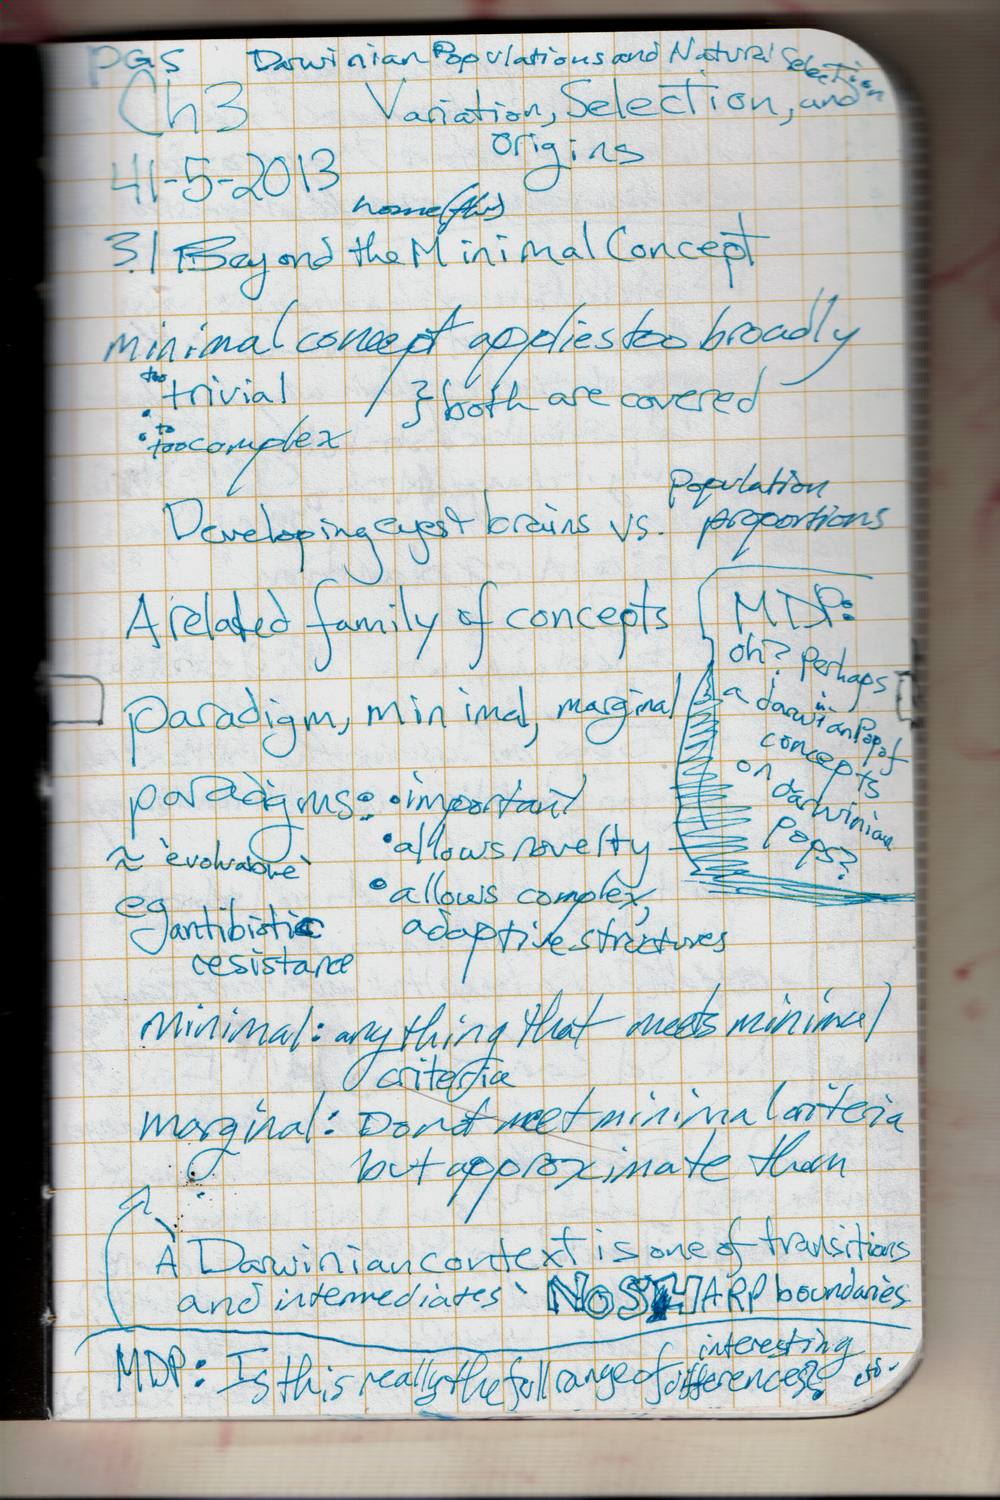 PGS Darwinian Populations and Natural Selection
Ch3 Variation, Selection, and
Origins
41-5-2013
home (fri)
3.1 Beyond the Minimal Concept
minimal concept applies too broadly
• too trivial } both are covered
• too complex
Developing eyes + brains vs. population
proportions
A related family of concepts
paradigm, minimal, marginal
MDP:
oh? perhaps
a darwinian pop of
concepts
on darwinian
pops?
paradigms: • important
≈ 'evolvable'
• allows novelty
• allows complex,
adaptive structures
eg antibiotic
resistance
minimal: anything that meets minimal
criteria
marginal: Do not meet minimal criteria
but approximate them
'A Darwinian context is one of transitions
and intermediates' NO SHARP boundaries
MDP: Is this really the full range of interesting
differences?